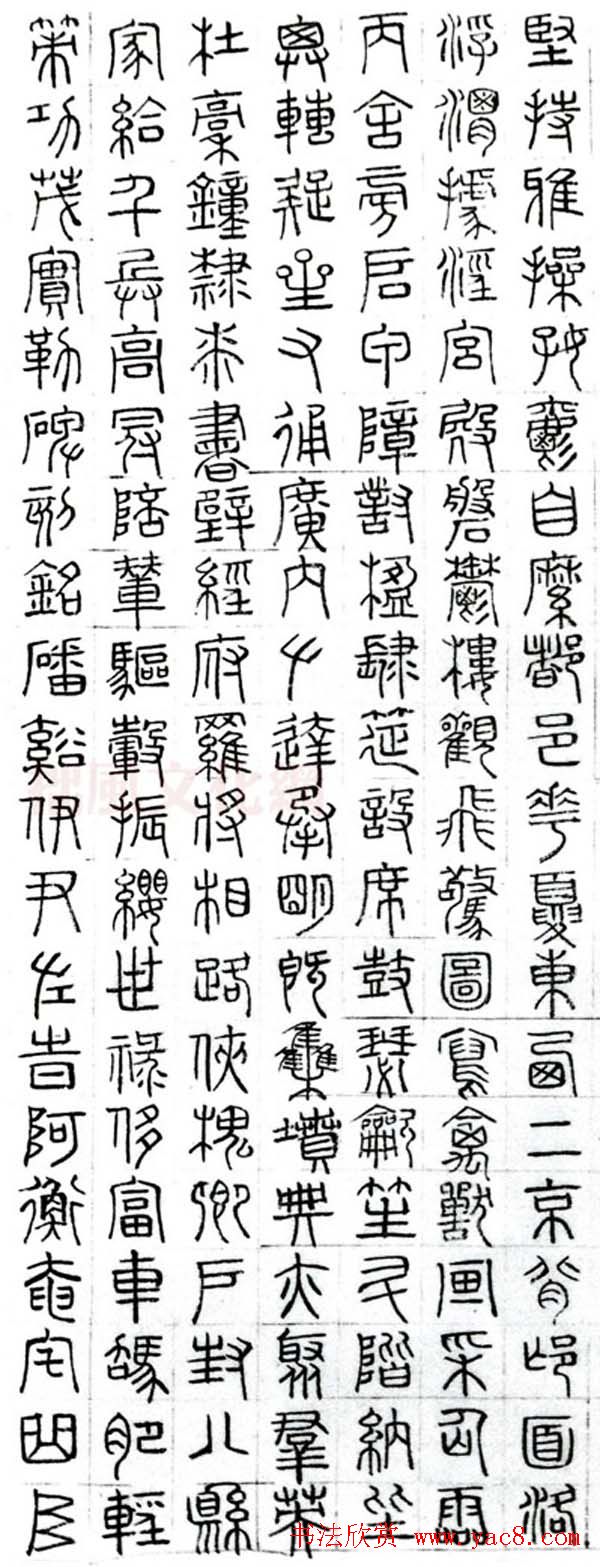 堅持雅操好爵自縻都邑華夏東西二京背邙面洛
浮渭據涇宮殿磐鬱樓觀飛驚圖寫禽獸畫采仙靈
丙舍旁启甲障對楹肆筵設席鼓瑟龡笙升階納陛
弁轉疑星右通廣內左達承明既集墳典亦聚羣英
杜稾鐘隸桼書壁經府羅將相路俠槐卿戶封八縣
家給千兵高冠陪輦驅轂振纓世祿侈富車駕肥輕
策功茂實勒碑刻銘磻谿伊尹佐時阿衡奄宅曲阜
书法欣赏 www.yac8.com